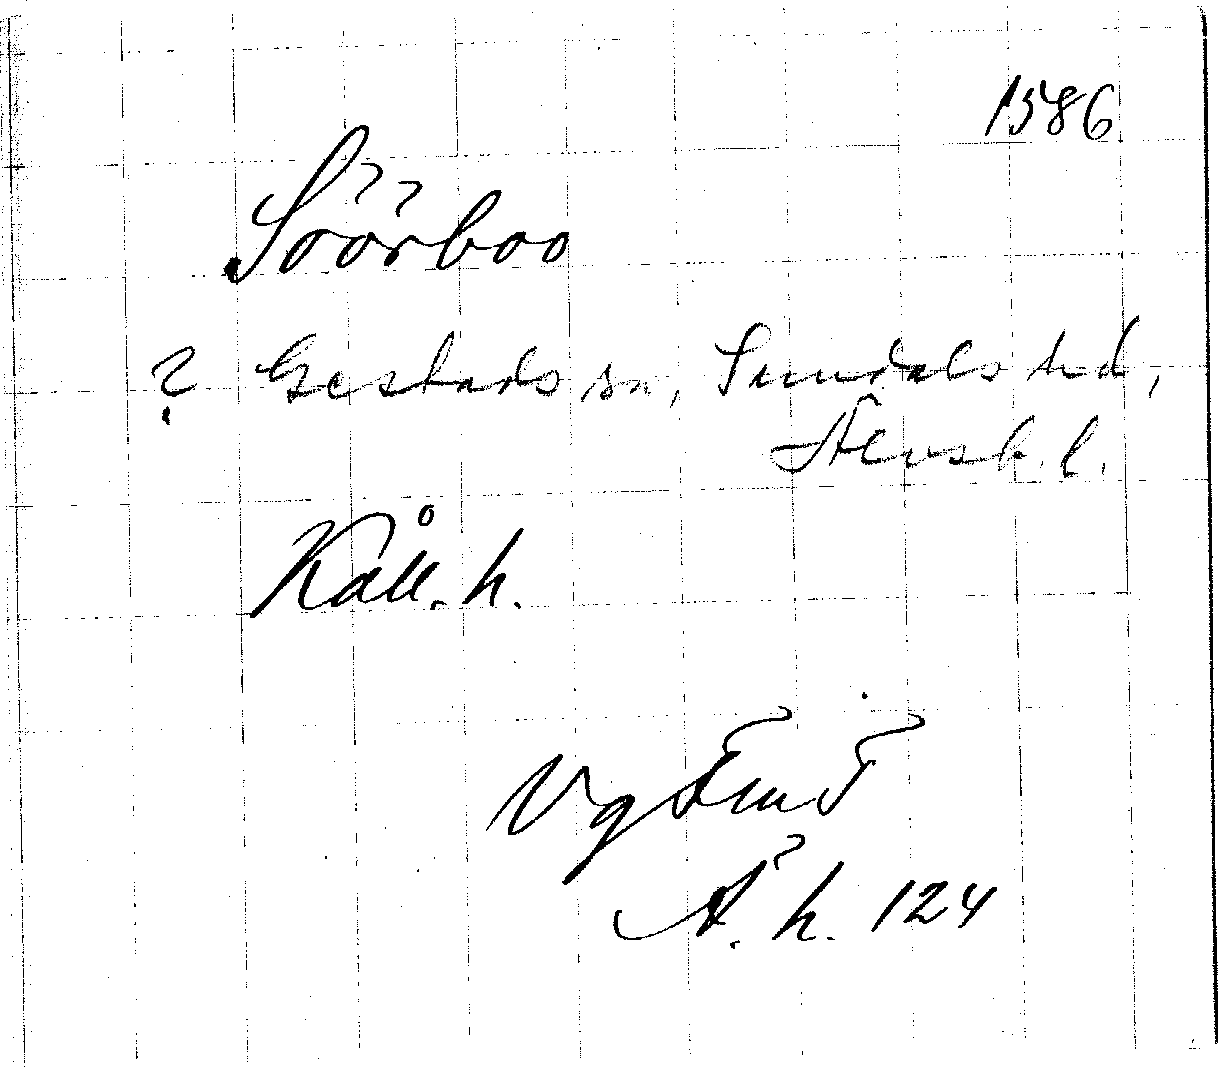 1586
Söörboo
? Gestads sn, Sundals hd,
Älvsb. l.
Kåll. h.
Vg
Ä. h. 124